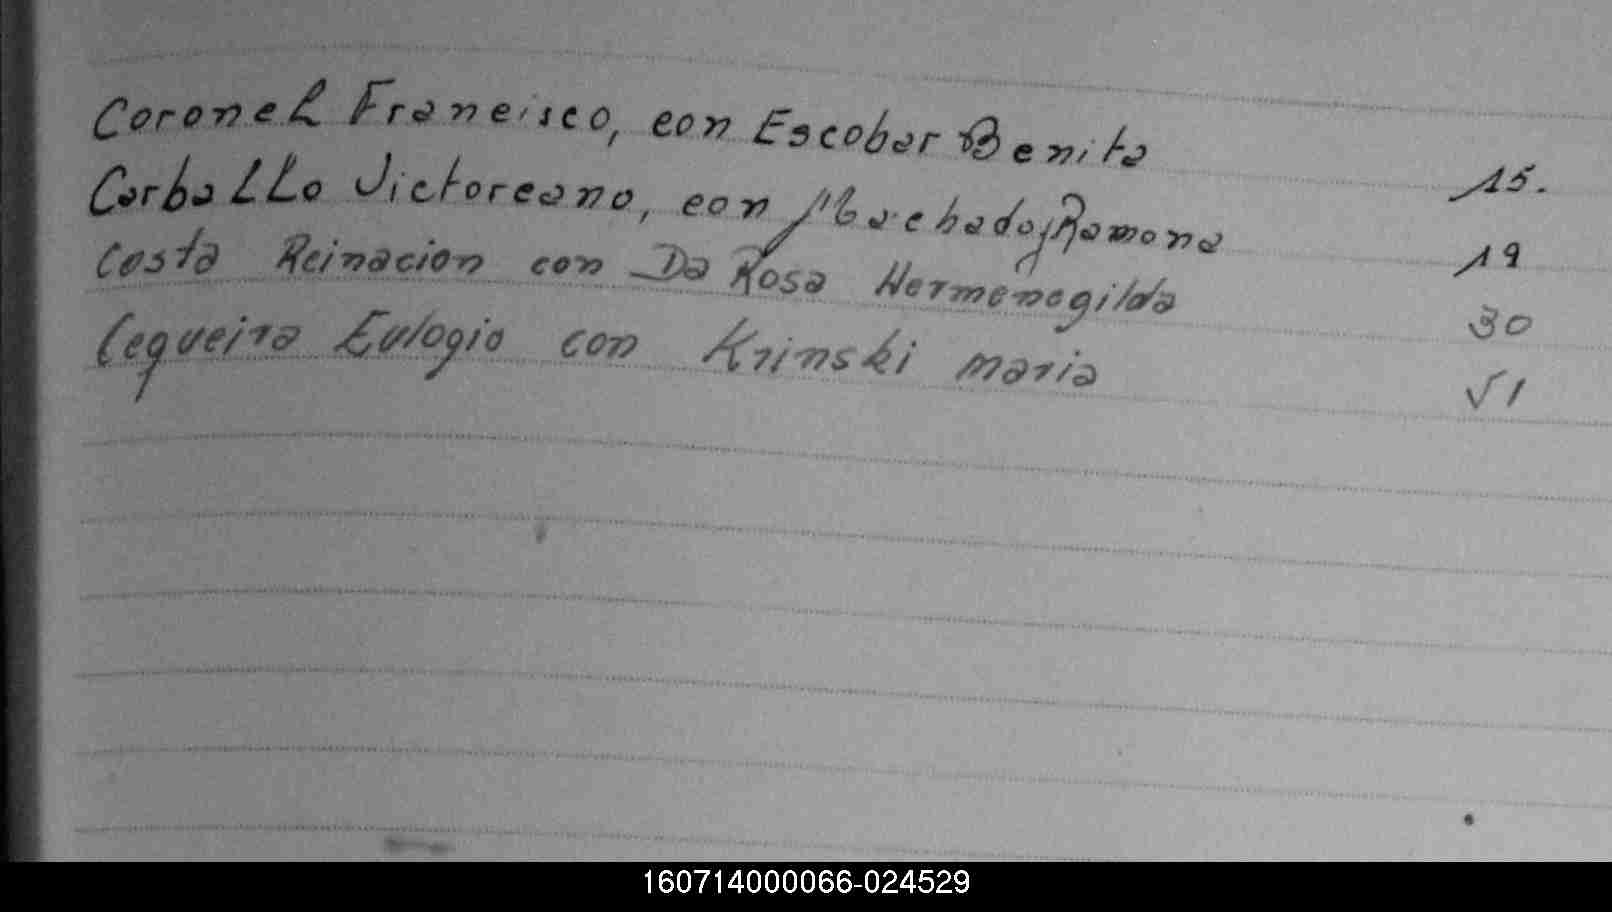 Coronel Francisco, con Escobar Benita 15.
Carballo Victoreano, con Machado, Ramona 19
Costa Reinacion con Da Rosa Hermenegilda 30
Cequeira Eulogio con Krinski maria 51
160714000066-024529